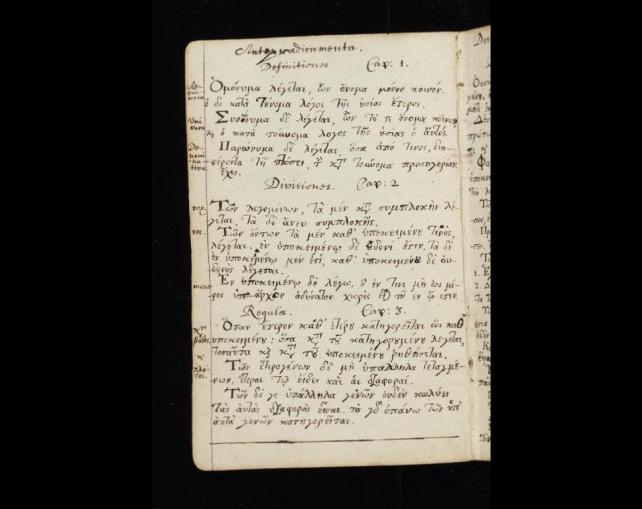 Antepraedicamenta.
Definitiones Cap: 1.
Ὁμόνυμα λέγεται, ὧν ὄνομα μόνον κοινόν,
ὁ δὲ κατὰ τὔνομα λόγος τῆς οὐσίας ἕτερος.
Συνώνυμα δὲ λέγεται, ὧν τό τε ὄνομα κοινὸν
καὶ ὁ κατὰ τοὔνομα λόγος τῆς οὐσίας ὁ αὐτός.
Παρώνυμα δὲ λέγεται ὅσα ἀπό τινος, δια-
φέροντα τῇ πτώσει, τὴν κατὰ τοὔνομα προσηγορίαν
ἔχει.
Divisiones. Cap: 2
Τῶν λεγομένων, τὰ μὲν κατὰ συμπλοκὴν λέ-
γεται, τὰ δὲ ἄνευ συμπλοκῆς.
Τῶν ὄντων τὰ μὲν καθ' ὑποκειμένου τινὸς
λέγεται, ἐν ὑποκειμένῳ δὲ οὐδενί ἐστιν, τὰ δὲ
ἐν ὑποκειμένῳ μέν ἐστι, καθ' ὑποκειμένου δὲ οὐ-
δενὸς λέγεται.
Ἐν ὑποκειμένῳ δὲ λέγω, ὃ ἔν τινι μὴ ὡς μέ-
ρος ὑπάρχον ἀδύνατον χωρὶς εἶναι τοῦ ἐν ᾧ ἐστιν.
Regulae. Cap: 3.
Ὅταν ἕτερον καθ' ἑτέρου κατηγορεῖται ὡς καθ'
ὑποκειμένου: ὅσα κατὰ τοῦ κατηγορουμένου λέγεται,
τοσαῦτα καὶ κατὰ τοῦ ὑποκειμένου ῥηθήσεται.
Τῶν ἑτερογενῶν δὲ μὴ ὑπάλληλα τεταγμέ-
νων, ἕτεραι τῷ εἴδει καὶ αἱ διαφοραί.
Τῶν δέ γε ὑπάλληλα γενῶν οὐδὲν κωλύει
τὰς αὐτὰς διαφορὰς εἶναι. τὰ γὰρ ἐπάνω τῶν ὑπ'
αὐτὰ γενῶν κατηγορεῖται.